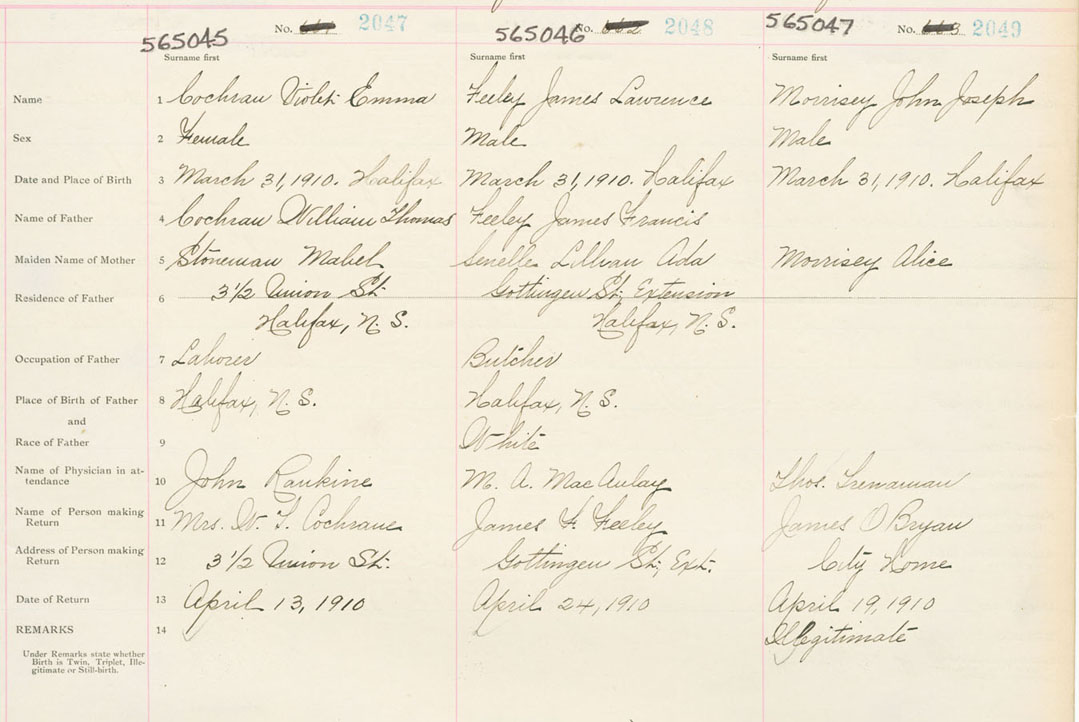 No. 661 2047 No. 662 2048 No. 663 2049
565045 565046 565047
Surname first Surname first Surname first
Name 1 Cochran Violet Emma Feeley James Lawrence Morrisey John Joseph
Sex 2 Female Male Male
Date and Place of Birth 3 March 31, 1910. Halifax March 31, 1910. Halifax March 31, 1910. Halifax
Name of Father 4 Cochran William Thomas Feeley James Francis
Maiden Name of Mother 5 Stoneman Mabel Lillian Ada Morrisey Alice
Residence of Father 6 3 1/2 Union St. Gottingen St., Extension
Halifax, N. S. Halifax, N. S.
Occupation of Father 7 Laborer Butcher
Place of Birth of Father 8 Halifax, N. S. Halifax, N. S.
and
Race of Father 9 White
Name of Physician in at-
tendance 10 John Rankine M. A. MacAulay Thos. Trenaman
Name of Person making
Return 11 Mrs. W. T. Cochrane James F. Feeley James O'Bryan
Address of Person making
Return 12 3 1/2 Union St. Gottingen St., Ext. City Home
Date of Return 13 April 13, 1910 April 24, 1910 April 19, 1910
REMARKS 14 Illegitimate
Under Remarks state whether
Birth is Twin, Triplet, Ille-
gitimate or Still-birth.